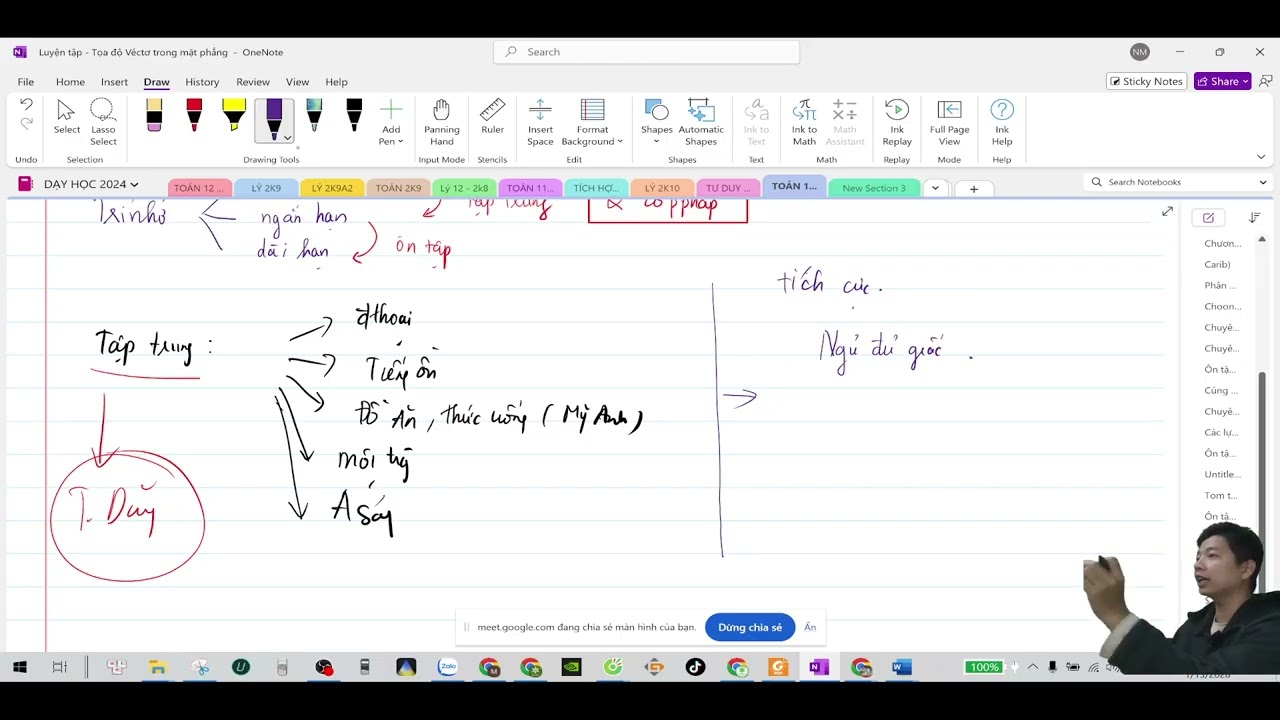 Luyện tập - Tọa độ Véctơ trong mặt phẳng - OneNote
Search
NM
File Home Insert Draw History Review View Help
Sticky Notes
Share
Select
Lasso Select
Add Pen
Panning Hand
Ruler
Insert Space
Format Background
Shapes
Automatic Shapes
Ink to Text
Ink to Math
Math Assistant
Ink Replay
Full Page View
Ink Help
Undo
Selection
Drawing Tools
Input Mode
Stencils
Edit
Shapes
Text
Math
Replay
Mode
Help
DẠY HỌC 2024
TOÁN 12 ...
LÝ 2K9
LÝ 2K9A2
TOÁN 2K9
Lý 12 - 2k8
TOÁN 11...
TÍCH HỢ...
LÝ 2K10
TƯ DUY ...
TOÁN 1...
New Section 3
Search Notebooks
Trí nhớ
ngắn hạn
dài hạn
tập trung
ôn tập
Tập trung :
T. Duy
đthoại
Tiếng ồn
Đồ Ăn, thức uống (Mỹ Anh)
môi trg
A sáng
tích cực.
Ngủ đủ giấc.
Chươn...
Carib)
Phản ...
Choon...
Chuyê...
Chuyê...
Ôn tậ...
Cúng ...
Chuyê...
Các lự...
Ôn tậ...
Untitle...
Tom t...
Ôn tậ...
meet.google.com đang chia sẻ màn hình của bạn.
Dừng chia sẻ
Ẩn
Zalo
100%